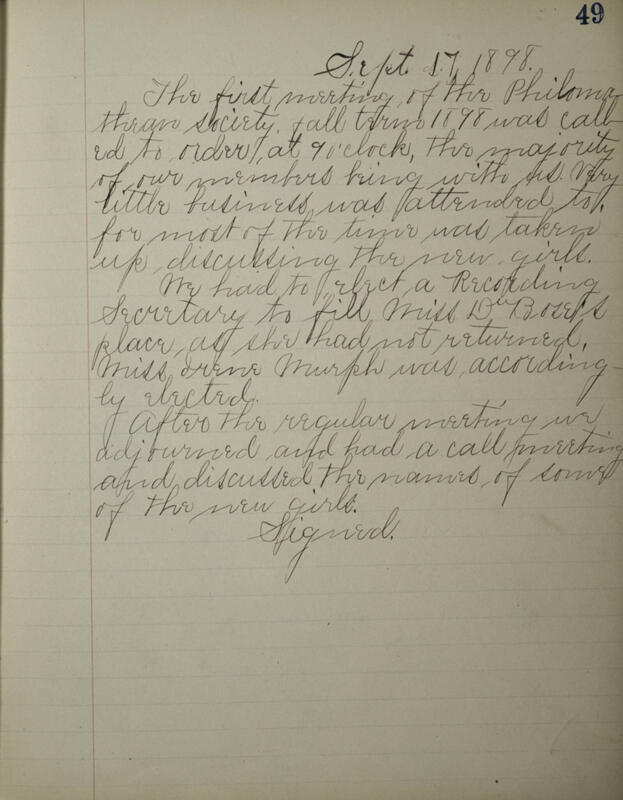 49
Sept. 17, 1898.
The first meeting of the Philoma-
thean society, fall term 1898 was call-
ed to order, at 9 o'clock, the majority
of our members being with us. Very
little business was attended to,
for most of the time was taken
up, discussing the new girls.
We had to elect a Recording
Secretary to fill Miss Du Bose's
place, as she had not returned.
Miss Irene Murph was, according-
ly elected.
After the regular meeting we
adjourned and had a call meeting
and discussed the names of some
of the new girls.
Signed.